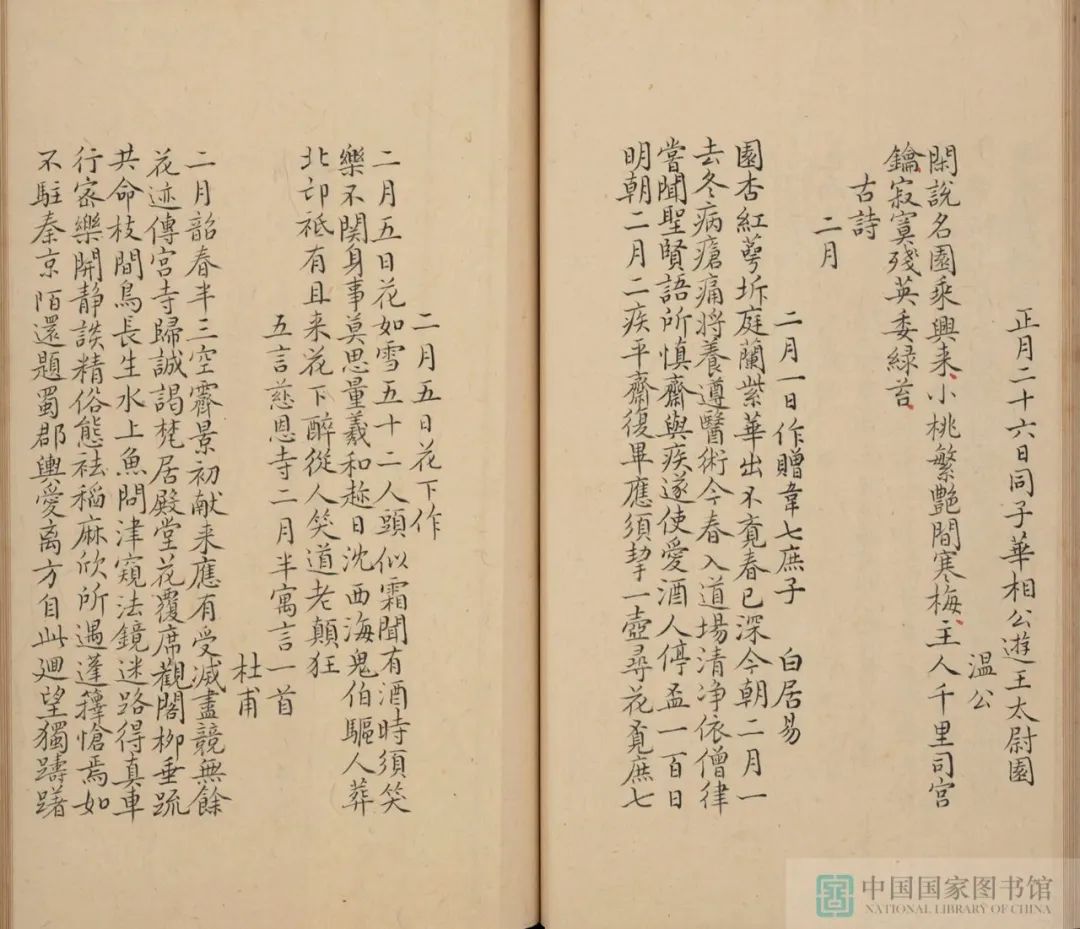 正月二十六日同子華相公遊王太尉園
溫公
閑說名園乘興来小桃繁艷間寒梅主人千里司宮
鑰寂寞殘英委緑苔
古詩
二月
二月一日作贈韋七庶子　白居易
園杏紅萼坼庭蘭紫華出不覔春已深今朝二月一
去冬病瘡痛將養遵醫術今春入道場清净依僧律
嘗聞聖賢語所慎齋與疾遂使愛酒人停盃一百日
明朝二月二疾平齋復畢應須挈一壺尋花覔庶七
二月五日花下作
二月五日花如雪五十二人頭似霜聞有酒時須笑
樂不関身事莫思量羲和趂日沈西海鬼伯驅人葬
北邙祗有且来花下醉從人笑道老顛狂
五言慈恩寺二月半寓言一首
杜甫
二月韶春半三空霽景初献来應有受滅盡競無餘
花迹傳宮寺歸誠謁梵居殿堂花覆席觀閣柳垂疏
共命枝間鳥長生水上魚問津窺法鏡迷路得真車
行密樂開静談精俗態祛稻麻欣所遇蓬籜愴焉如
不駐秦京陌還題蜀郡輿愛离方自此廻望獨躊躇
中国国家图书馆
NATIONAL LIBRARY OF CHINA